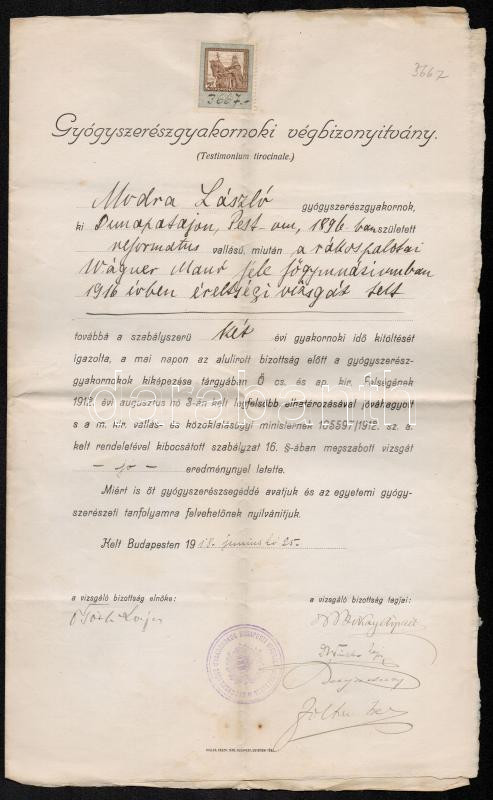 3667
3667.-
Gyógyszerészgyakornoki végbizonyitvány.
(Testimonium tirocinale.)
Modra László gyógyszerészgyakornok,
ki Dunapatajon, Pest-vm, 1896 ban született
református vallású, miután a rákospalotai
Wágner Manó féle főgymnásiumban
1916 évben érettségi vizsgát tett
továbbá a szabályszerü két évi gyakornoki idő kitöltését
igazolta, a mai napon az alulirott bizottság előtt a gyógyszerész-
gyakornokok kiképezése tárgyában Ő cs. és ap. kir. Felségének
1912. évi augusztus hó 3-án kelt legfelsőbb elhatározásával jóváhagyott
s a m. kir. vallás- és közoktatásügyi ministernek 105597/1912. sz. a.
kelt rendeletével kibocsátott szabályzat 16. §-ában megszabott vizsgát
- jó - eredménynyel letette.
Miért is őt gyógyszerészsegéddé avatjuk és az egyetemi gyógy-
szerészeti tanfolyamra felvehetőnek nyilvánitjuk.
Kelt Budapesten 1918. június hó 25.
a vizsgáló bizottság elnöke:
a vizsgáló bizottság tagjai:
darabanth